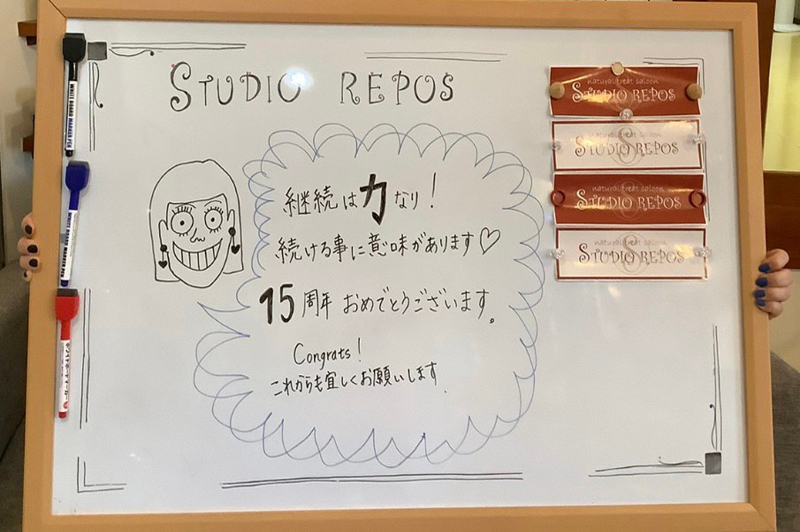 STUDIO REPOS
継続は力なり!
続ける事に意味があります♡
15周年 おめでとうございます。
Congrats!
これからも宜しくお願いします
natural treat saloon
STUDIO REPOS
STUDIO REPOS
natural treat saloon
STUDIO REPOS
natural treat saloon
STUDIO REPOS
WHITE BOARD MARKER PEN
WHITE BOARD MARKER PEN